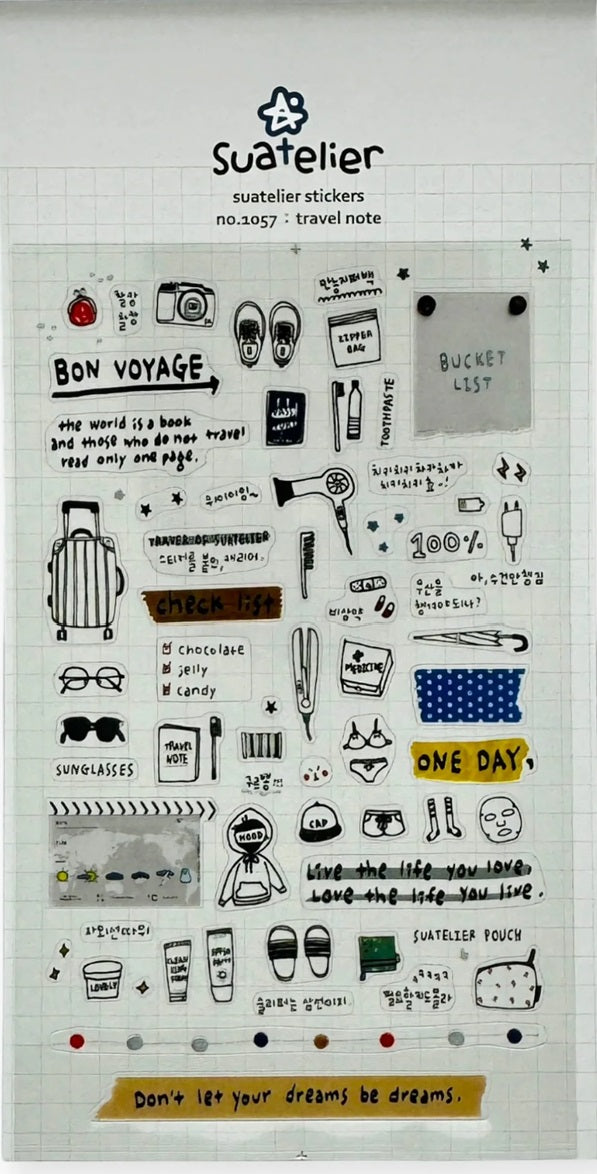 suatelier
suatelier stickers
no.1057 : travel note
찰랑
찰랑
만능지퍼백
ZIPPER
BAG
BUCKET
LIST
BON VOYAGE
the world is a book
and those who do not travel
read only one page.
TOOTHPASTE
위이이잉~
치키치키차카차카
100%
TRAVEL OF SUATELIER
check list
chocolate
jelly
candy
비상약
우산을
챙겨야되나?
아, 수건만챙김
MEDICINE
TRAVEL
NOTE
SUNGLASSES
ONE DAY,
HOOD
CAP
Live the life you love,
Love the life you live.
자외선따위
LOVELY
SUATELIER POUCH
슬리퍼는 삼선이지.
필요할지도 몰라
Don't let your dreams be dreams.